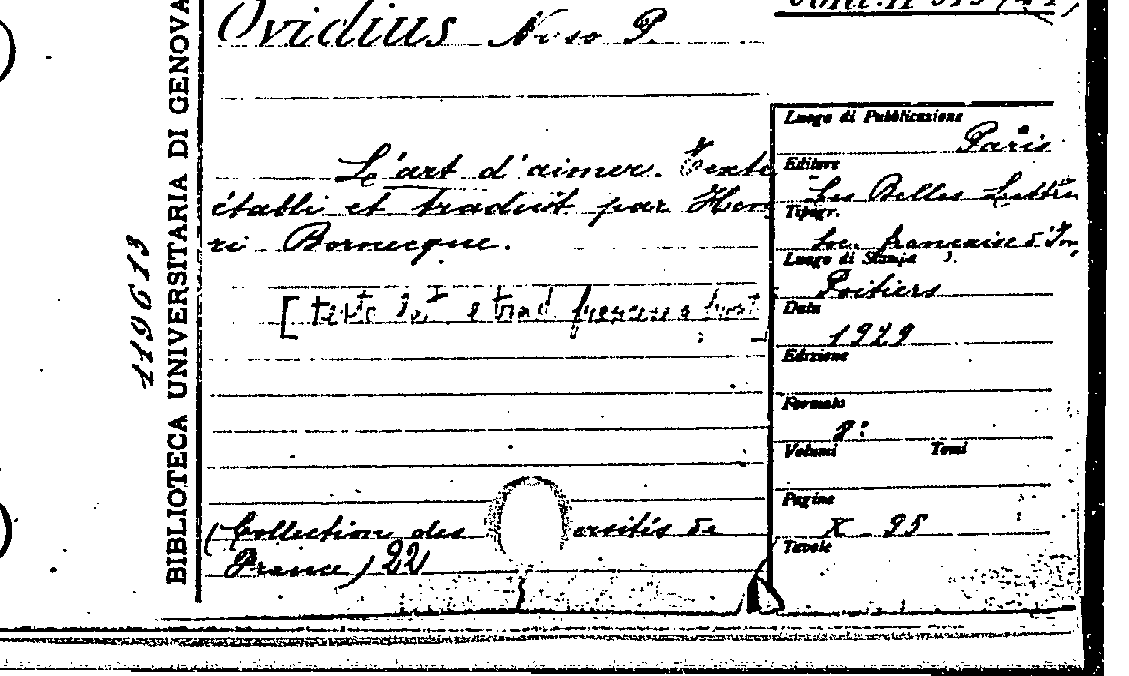 Ovidius Naso P.
L'art d'aimer. Texte
établi et traduit par Hen
ri Bornecque.
[testo lat e trad francese a front
(Collection des ersités de
France) 22
119613
BIBLIOTECA UNIVERSITARIA DI GENOVA
Luogo di Pubblicazione
Paris
Editore
Les Belles Lettres
Tipogr.
Soc. française d'Im
Luogo di Stampa
Poitiers
Data
1929
Edizione
Formato
8:
Volumi Tomi
Pagine
X 95
Tavole